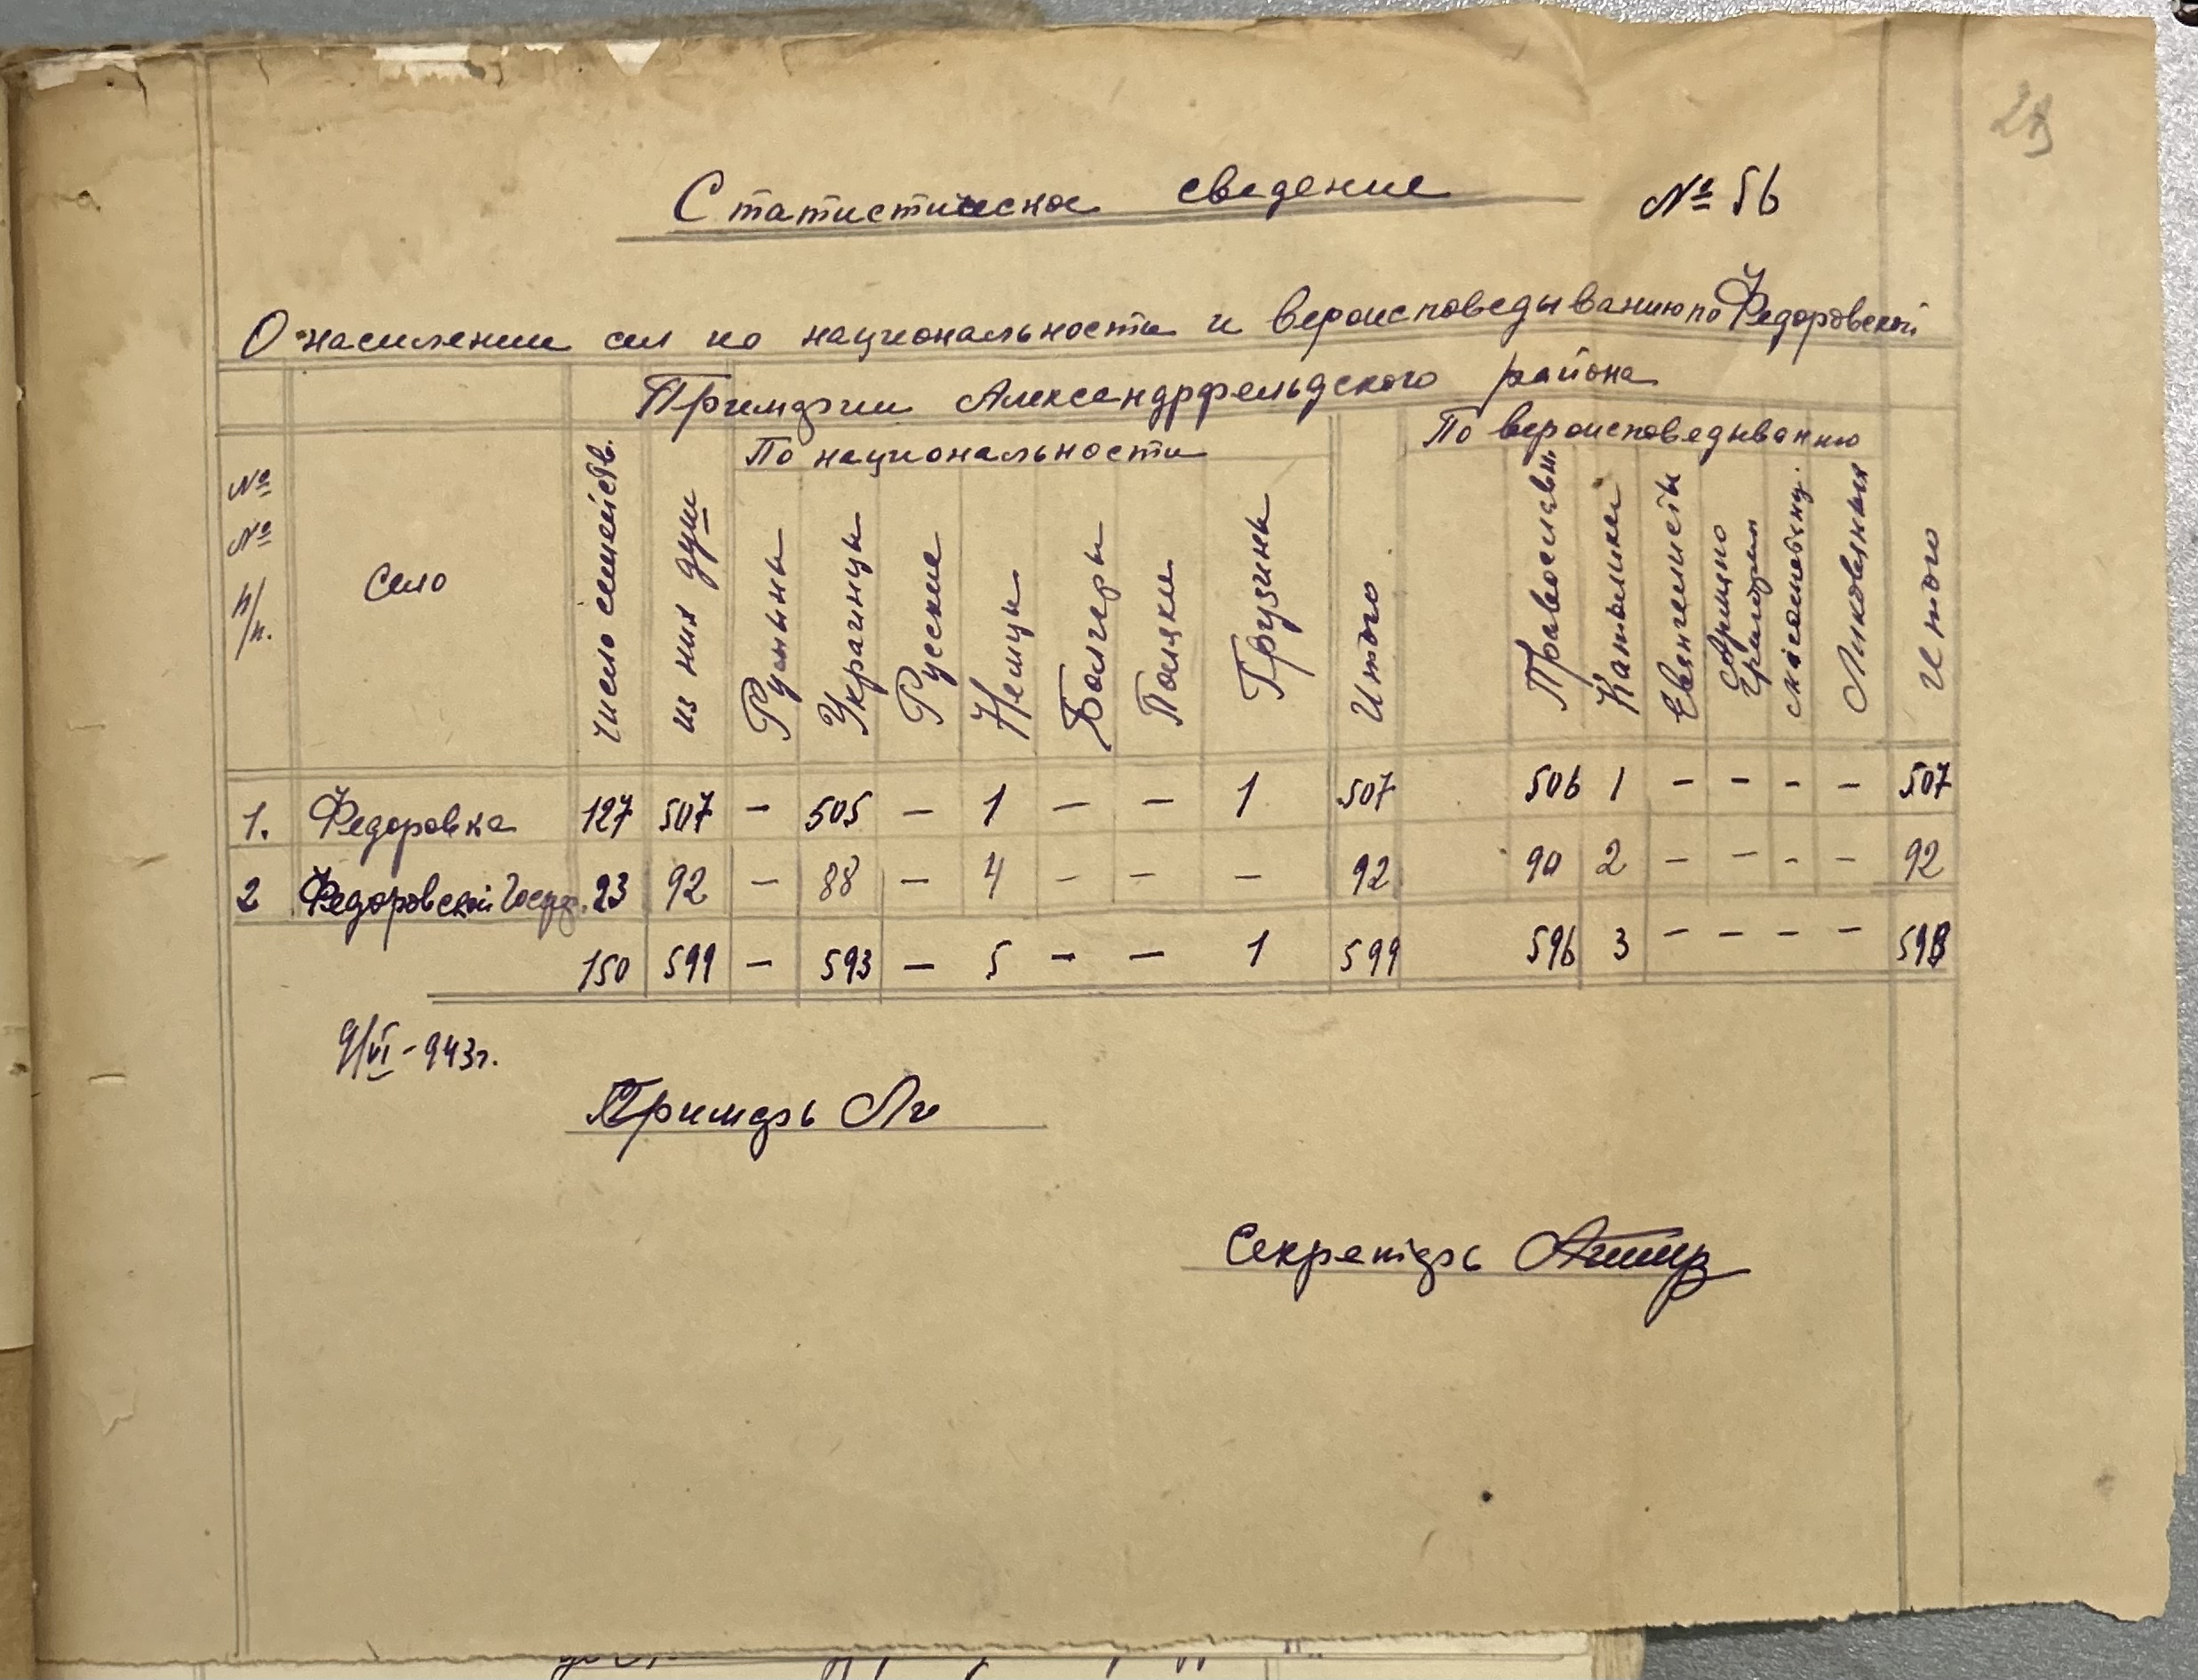 29
Статистическое сведение № 56
О населении сел по национальности и вероисповедыванию по Федоровской
Примэрии Александрфельдского района
По национальности По вероисповедыванию
№ № п/п. Село Число семейств. из них душ Румыны Украинцы Русские Немцы Болгары Поляки Грузины Итого Православн. Католики Евангелисты Армяно Грегориан Итого
1. Федоровка 127 507 – 505 – 1 – – 1 507 506 1 – – – – 507
2 Федоровской 23 92 – 88 – 4 – – – 92 90 2 – – – – 92
150 599 – 593 – 5 – – 1 599 596 3 – – – –
9/VI – 943г.
Примарь
Секретарь